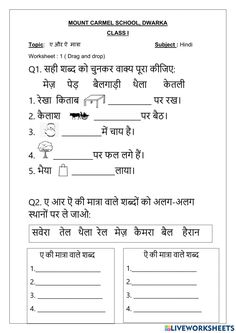 MOUNT CARMEL SCHOOL, DWARKA
CLASS I
Topic: ए और ऐ मात्रा Subject : Hindi
Worksheet : 1 ( Drag and drop)
Q1. सही शब्द को चुनकर वाक्य पूरा कीजिए:
मेज़ पेड़ बैलगाड़ी थैला केतली
1. रेखा किताब ________ पर रख।
2. कैलाश ________पर बैठ।
3. ________में चाय है।
4. ________पर फल लगे हैं।
5. भैया ________लाया।
Q2. ए आर ऐ की मात्रा वाले शब्दों को अलग-अलग
स्थानों पर ले जाओ:
सवेरा तेल थैला रेल मेज़ केमरा बैल हैरान
ए की मात्रा वाले शब्द
1.
2.
3.
4.
ऐ की मात्रा वाले शब्द
1.
2.
3.
4.
LIVEWORKSHEETS